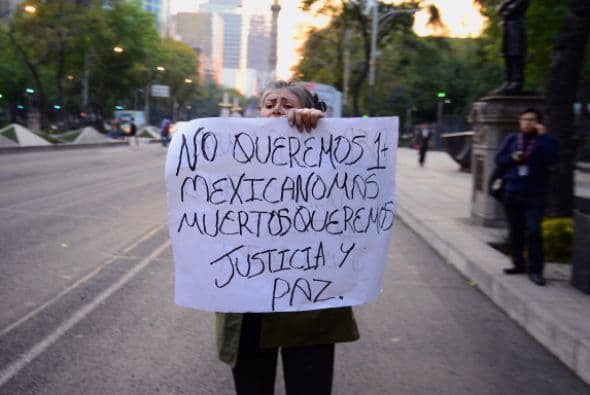 NO QUEREMOS 1+
MEXICANO MAS
MUERTOS QUEREMOS
JUSTICIA Y
PAZ.